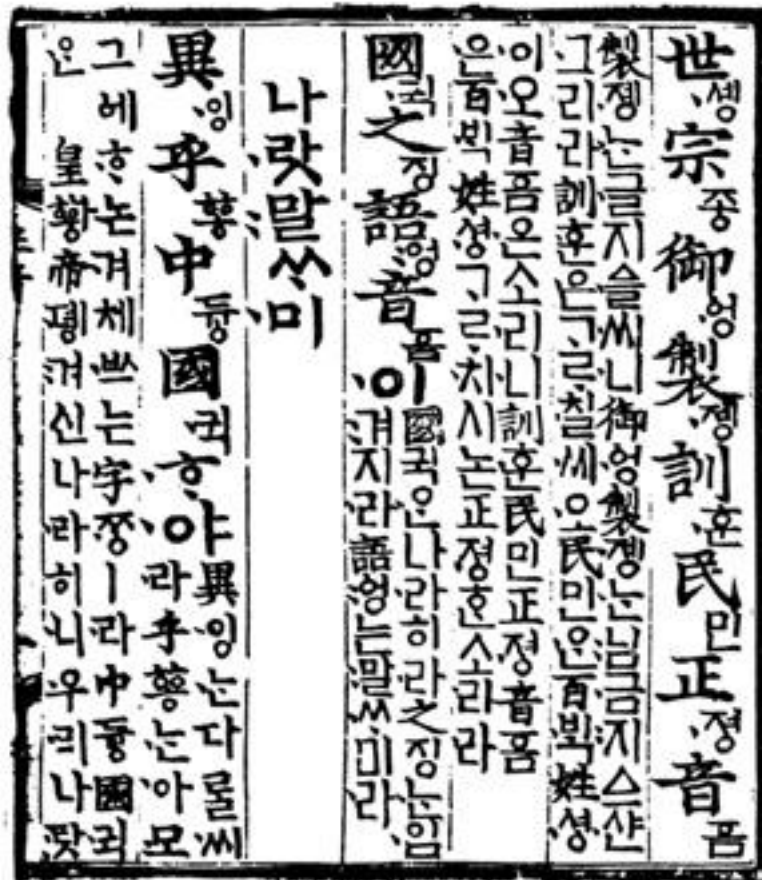 世솅宗조ᇰ御ᅌᅥᆼ製졩訓훈民민正져ᇰ音ᅙᅳᆷ
製졩ᄂᆞᆫ글지ᅀᅳᆯ씨니御ᅌᅥᆼ製졩ᄂᆞᆫ님금지ᅀᅳ샨
그리라訓훈은ᄀᆞᄅᆞ칠씨오民민ᄋᆞᆫ百ᄇᆡᆨ姓셔ᇰ
이오音ᅙᅳᆷ은소리니訓훈民민正져ᇰ音ᅙᅳᆷ
은百ᄇᆡᆨ姓셔ᇰᄀᆞᄅᆞ치시논正져ᇰᄒᆞᆫ소리라
國귁之징語ᅌᅥᆼ音ᅙᅳᆷ이
國귁ᄋᆞᆫ나라히라之징ᄂᆞᆫ입
겨지라語ᅌᅥᆼ는말ᄊᆞ미라
나랏말ᄊᆞ미
異잉乎ᅘᅩᆼ中듀ᇰ國귁ᄒᆞ야
異잉ᄂᆞᆫ다ᄅᆞᆯ씨
라乎ᅘᅩᆼᄂᆞᆫ아모
그ᅌᅦᄒᆞ논겨체쓰는字ᄍᆞᆼㅣ라中듀ᇰ國귁
ᄋᆞᆫ皇ᅘᅪᇰ帝뎽겨신나라히니우리나랏